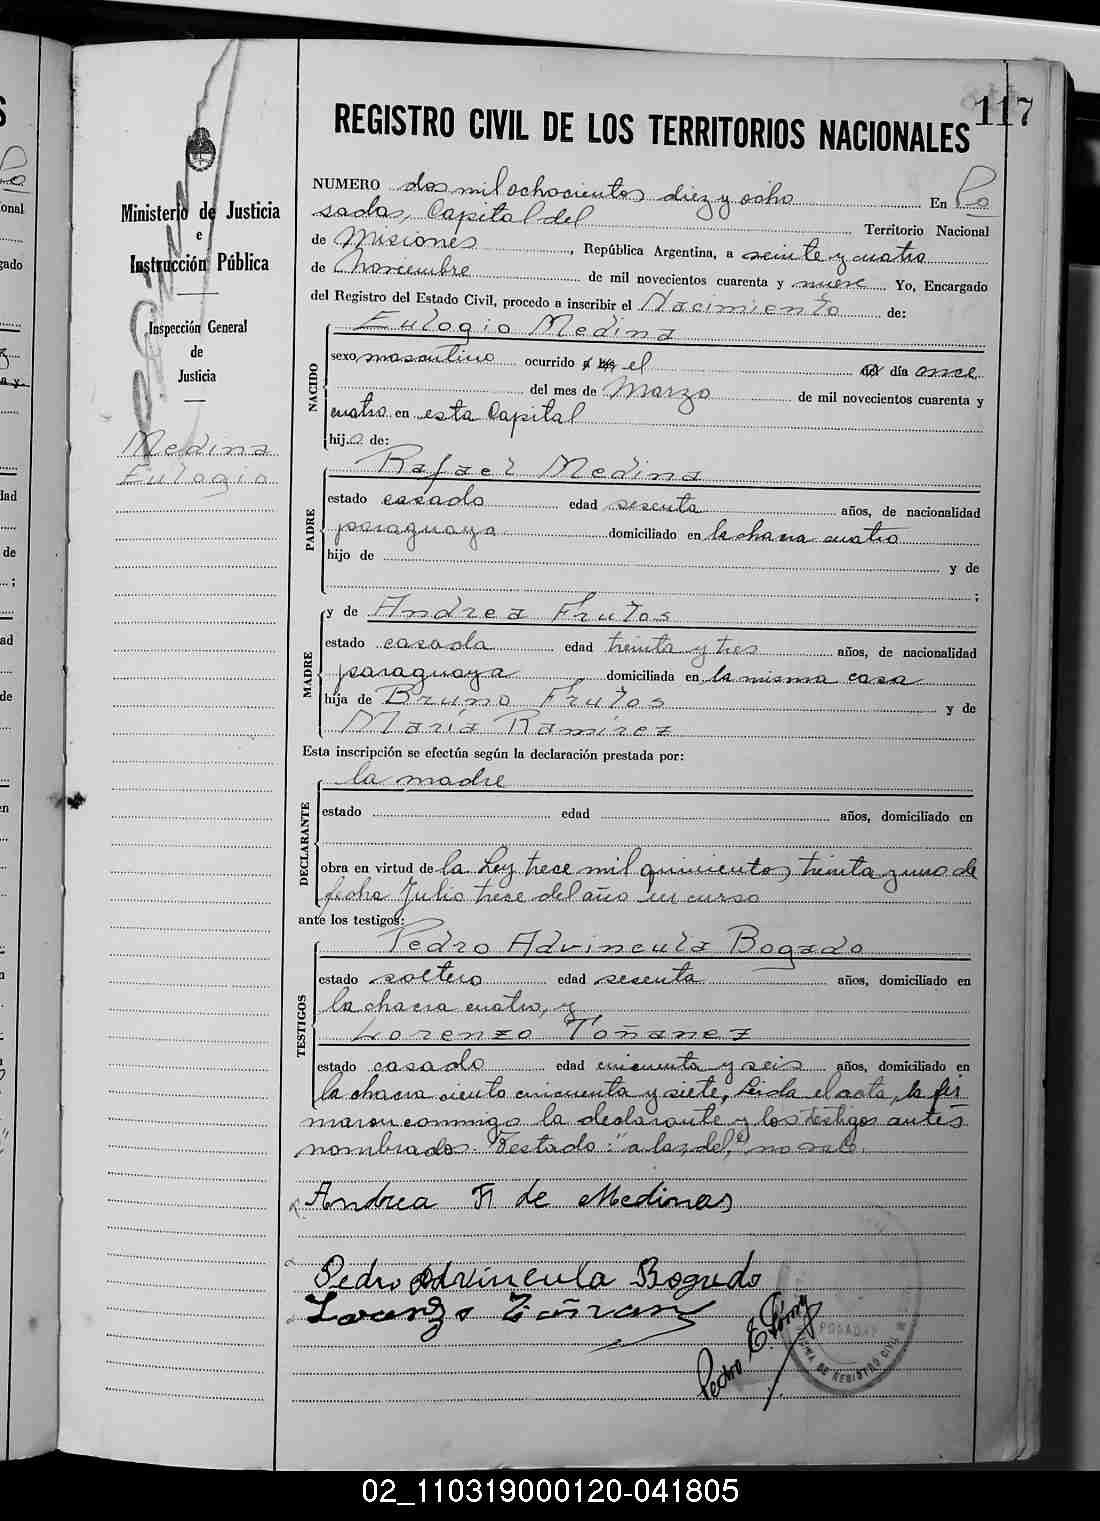 117
REGISTRO CIVIL DE LOS TERRITORIOS NACIONALES
Ministerio de Justicia
e
Instrucción Pública
Inspección General
de
Justicia
Medina
Eulogio
NUMERO dos mil ochocientos diez y ocho En Po
sadas, Capital del Territorio Nacional
de Misiones, República Argentina, a veinte y cuatro
de Noviembre de mil novecientos cuarenta y nueve Yo, Encargado
del Registro del Estado Civil, procedo a inscribir el Nacimiento de:
NACIDO
Eulogio Medina
sexo masculino ocurrido a las el del día once
del mes de Marzo de mil novecientos cuarenta y
cuatro en esta Capital
hijo de:
PADRE
Rafael Medina
estado casado edad sesenta años, de nacionalidad
paraguaya domiciliado en la chacra cuatro
hijo de y de
;
MADRE
y de Andrea Frutos
estado casada edad treinta y tres años, de nacionalidad
paraguaya domiciliada en la misma casa
hija de Bruno Frutos y de
María Ramírez
Esta inscripción se efectúa según la declaración prestada por:
DECLARANTE
la madre
estado edad años, domiciliado en
obra en virtud de la Ley trece mil quinientos treinta y uno de
fecha Julio trece del año en curso
ante los testigos:
TESTIGOS
Pedro Advincula Bogado
estado soltero edad sesenta años, domiciliado en
la chacra cuatro, y
Lorenzo Toñanez
estado casado edad cincuenta y seis años, domiciliado en
la chacra ciento cincuenta y siete, Leida el acta, la fir
maron conmigo la declarante y los testigos antes
nombrados. Testado: "a las, del," no vale.
Andrea F. de Medinas
Pedro Advincula Bogado
Pedro E.
POSADAS
DE REGISTRO CIVIL
02_110319000120-041805